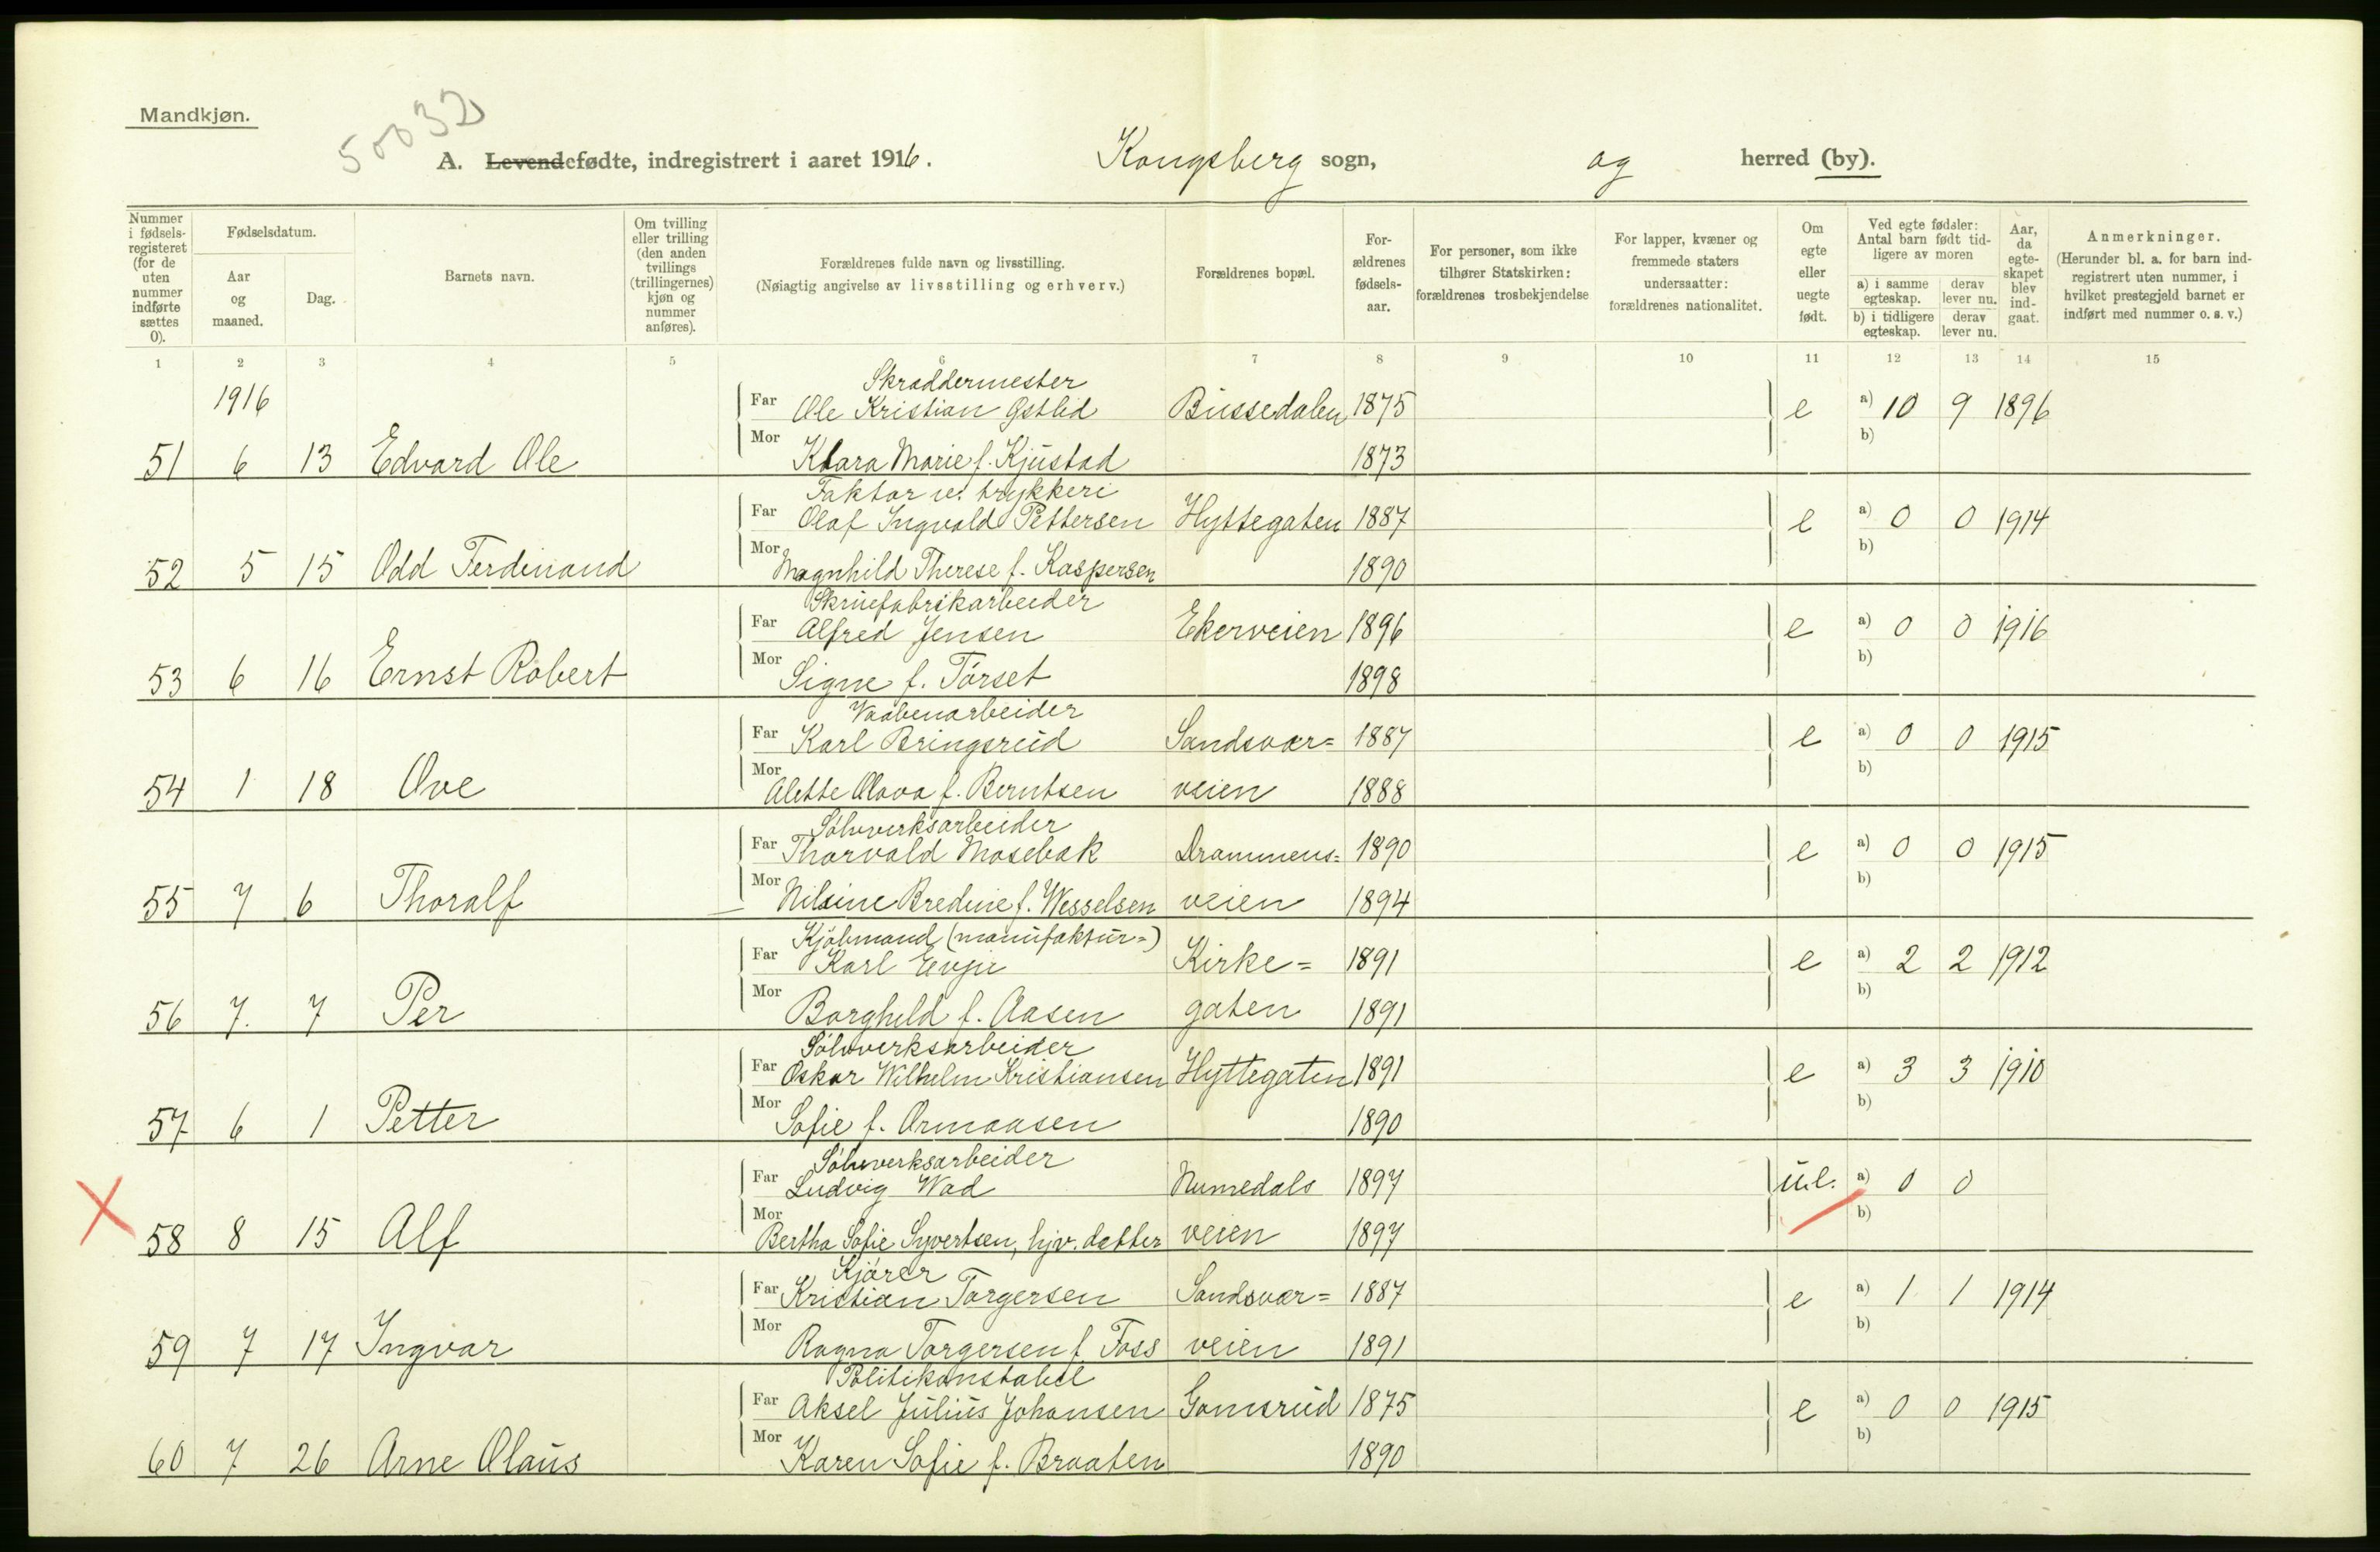 Mandkjøn.
50032
A. Levendefødte, indregistrert i aaret 1916. Kongsberg sogn, og herred (by).
Nummer i fødsels-registeret (for de uten nummer indførte sættes 0).
Fødselsdatum.
Aar og maaned.
Dag.
Barnets navn.
Om tvilling eller trilling (den anden tvillings (trillingernes) kjøn og nummer anføres).
Forældrenes fulde navn og livsstilling.
(Nøiagtig angivelse av livsstilling og erhverv.)
Forældrenes bopæl.
For-ældrenes fødsels-aar.
For personer, som ikke tilhører Statskirken: forældrenes trosbekjendelse
For lapper, kvæner og fremmede staters undersaatter: forældrenes nationalitet.
Om egte eller uegte født.
Ved egte fødsler: Antal barn født tid-ligere av moren
a) i samme egteskap.
derav lever nu.
b) i tidligere egteskap.
derav lever nu.
Aar, da egte-skapet blev ind-gaat.
Anmerkninger.
(Herunder bl. a. for barn ind-registrert uten nummer, i hvilket prestegjeld barnet er indført med nummer o. s. v.)
1 2 3 4 5 6 7 8 9 10 11 12 13 14 15
Skræddermester
1916 Far Ole Kristian Østlid Bussedalen 1875 e a) 10 9 1896
b)
51 6 13 Edvard Ole Mor Klara Marie f. Kjustad 1873
Faktor v. trykkeri
Far Olaf Ingvald Pettersen Hyttegaten 1887 e a) 0 0 1914
b)
52 5 15 Odd Ferdinand Mor Magnhild Therese f. Kaspersen 1890
Skruefabrikarbeider
Far Alfred Jensen Ekerveien 1896 e a) 0 0 1916
b)
53 6 16 Ernst Robert Mor Signe f. Törset 1898
Vaabenarbeider
Far Karl Bringsrud Sandsvær= 1887 e a) 0 0 1915
b)
54 1 18 Ove Mor Alette Olava f. Berntsen veien 1888
Sölvverksarbeider
Far Thorvald Mosebak Drammens= 1890 e a) 0 0 1915
b)
55 7 6 Thoralf Mor Nilsine Bredine f. Wesselsen veien 1894
Kjöbmand (manufaktur=)
Far Karl Evju Kirke= 1891 e a) 2 2 1912
b)
56 7. 7 Per Mor Borghild f. Aasen gaten 1891
Sölvverksarbeider
Far Oskar Wilhelm Kristiansen Hyttegaten 1891 e a) 3 3 1910
b)
57 6 1 Petter Mor Sofie f. Ormaasen 1890
Sölvverksarbeider
Far Ludvig Wad Numedals 1897 u.e. a) 0 0
b)
58 8 15 Alf Mor Bertha Sofie Syvertsen, hjv. datter veien 1897
Kjörer
Far Kristian Torgersen Sandsvær= 1887 e a) 1 1 1914
b)
59 7 17 Ingvar Mor Ragna Torgersen f. Foss veien 1891
Politikonstabel
Far Aksel Julius Johansen Gomsrud 1875 e a) 0 0 1915
b)
60 7 26 Arne Olaus Mor Karen Sofie f. Braaten 1890